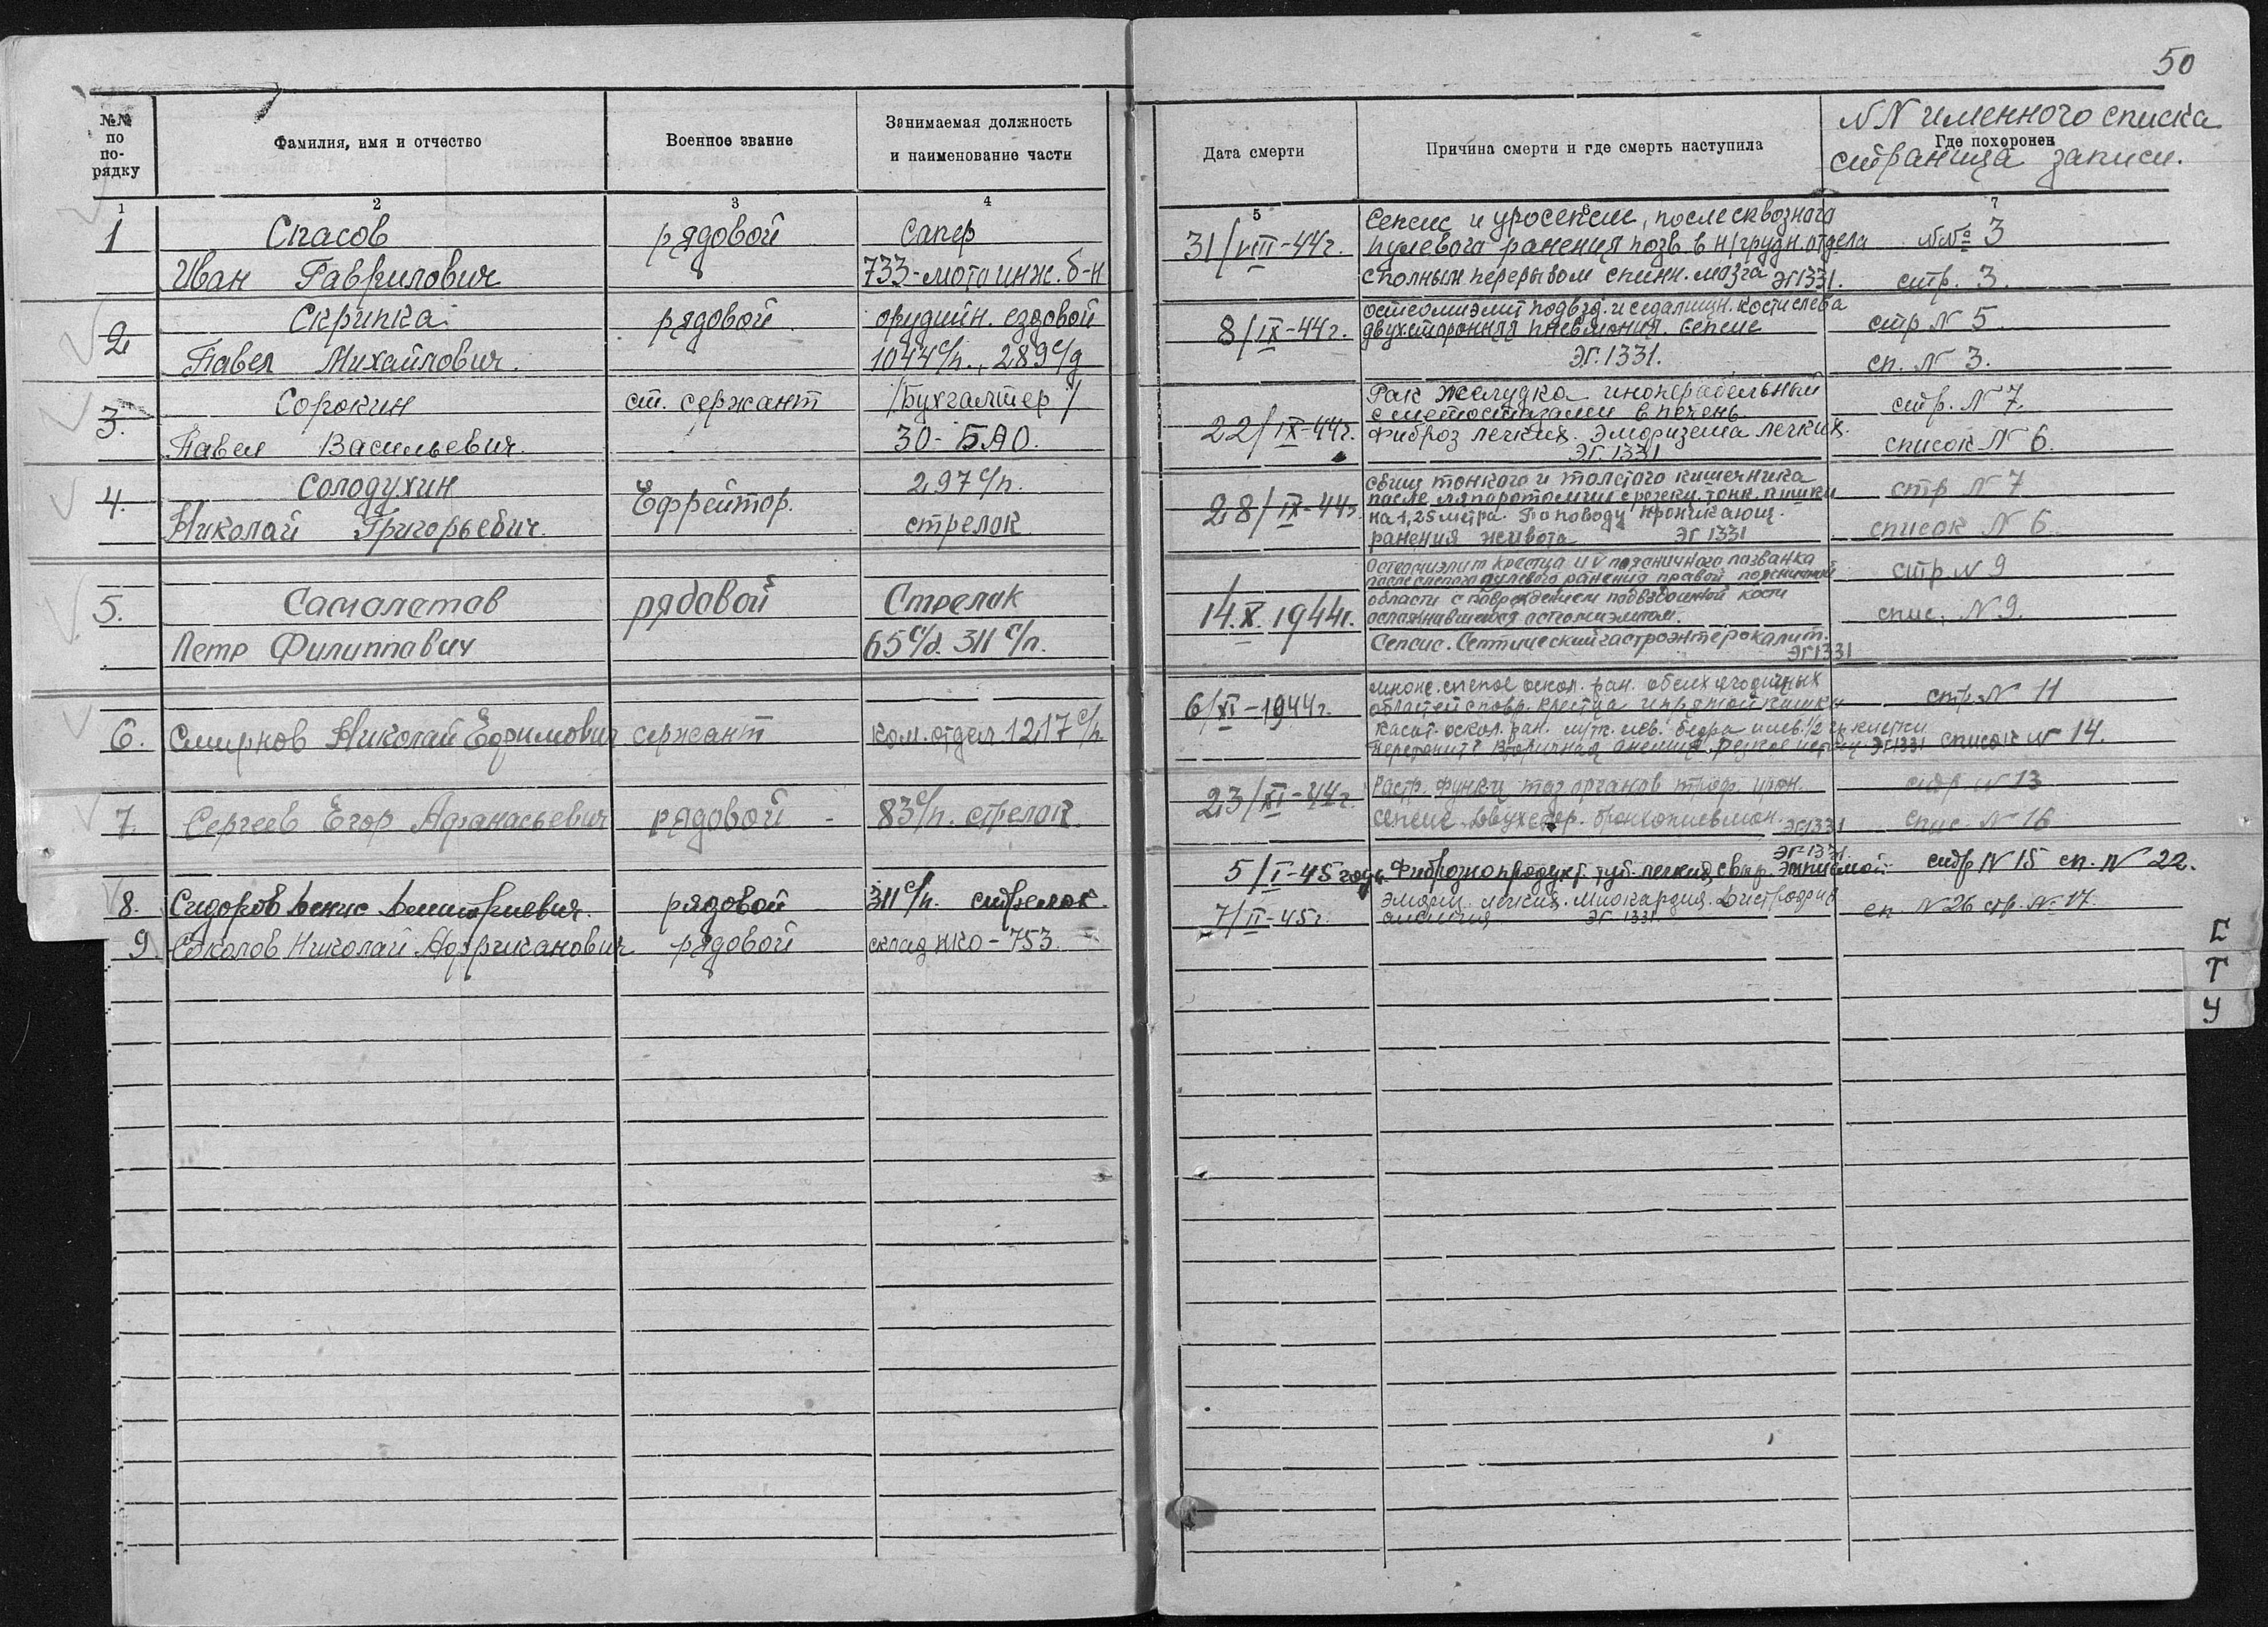 50
№№ по по-рядку
Фамилия, имя и отчество
Военное звание
Занимаемая должность и наименование части
Дата смерти
Причина смерти и где смерть наступила
Где похоронен
NN именного списка
страница записи.
1 2 3 4 5 6 7
1 Спасов рядовой Сапер
Иван Гаврилович 733-мото инж. б-н
31/VIII-44г.
Сепсис и уросепсис, после сквозного
пулевого ранения позв. в н/грудн. отдела
с полным перерывом спинн. мозга ЭГ1331.
№ 3
стр. 3.
2 Скрипка рядовой орудийн. ездовой
Павел Михайлович. 1044 с/п., 289 с/д
8/IX-44г.
остеомиэлит подвзд. и седалищн. кости слева
двухсторонняя пневмония. Сепсис
ЭГ.1331.
стр N 5
сп. N 3.
3. Сорокин ст. сержант /Бухгалтер/
Павел Васильевич. 30-БАО.
22/IX-44г.
Рак желудка иноперабельный
с метостазами в печень
Фиброз легких. Эмфизема легких.
ЭГ 1331
стр. N 7.
список N 6.
4. Солодухин Ефрейтор. 297 с/п.
Николай Григорьевич. стрелок
28/IX-44г.
свищ тонкого и толстого кишечника
после ляпоротомии с резекц. тонк. кишки
на 1,25 метра. По поводу проникающ.
ранения живота ЭГ 1331
стр N 7
список N 6
5. Самолетов рядовой Стрелок
Петр Филиппович 65 с/д. 311 с/п.
14.X.1944г.
Остеомиэлит крестца и V поясничного позванка
после слепого пулевого ранения правой поясничной
области с повреждением подвздошной кости
осложнившегося остеомиэлитом.
Сепсис. Септический гастроэнтероколит.
ЭГ1331
стр N 9
спис. N 9.
6. Смирнов Николай Ефимович сержант ком. отдел 1217 с/п
6/XI-1944г.
множ. слепое оскол. ран. обеих ягодичных
областей с повр. крестца и прямой кишки
касат. оскол. ран. м/тк. лев. бедра
перетонит вторичная анемия ЭГ1331
стр. N 11
список N 14.
7. Сергеев Егор Афанасьевич рядовой - 83 с/п. стрелок
23/XI-44г.
Растр. функц. таз органов
сепсис. Двухстор. бронхопневмон. ЭГ1331
стр. N 13
спис N 16
8. Сидоров Денис Дмитриевич. рядовой 311 с/п. стрелок.
5/I-45 года
Фиброзно продукт. туб. легких, с втор. Эмпиемой ЭГ-1331
стр N 15 сп. N 22.
9 Соколов Николай Африканович рядовой склад НКО-753.
7/II-45г.
Эмфиз. легких. Миокардия. Дистрофия
ЭГ 1331
сп N 26 стр. N-17.
С
Т
У